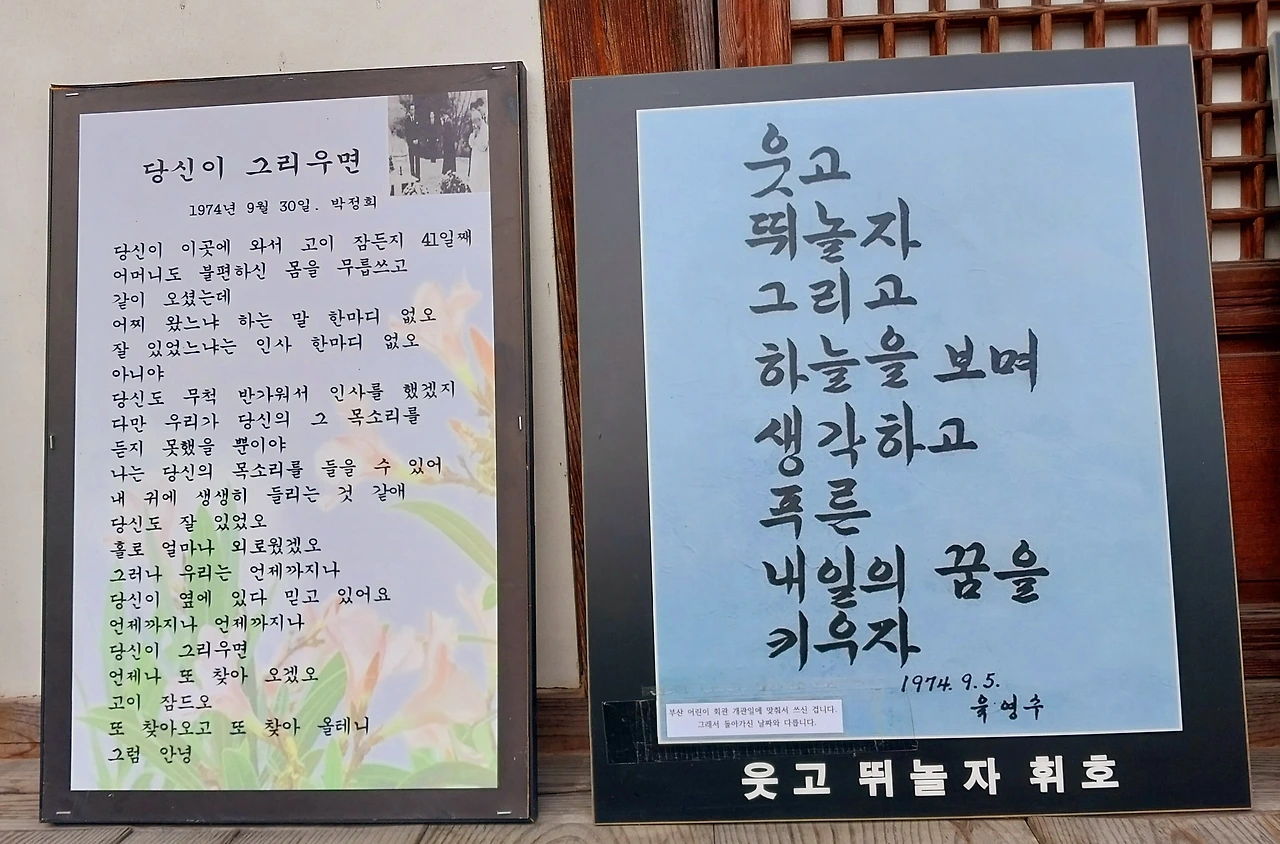 당신이 그리우면
1974년 9월 30일. 박정희
당신이 이곳에 와서 고이 잠든지 41일째
어머니도 불편하신 몸을 무릅쓰고
같이 오셨는데
어찌 왔느냐 하는 말 한마디 없오
잘 있었느냐는 인사 한마디 없오
아니야
당신도 무척 반가워서 인사를 했겠지
다만 우리가 당신의 그 목소리를
듣지 못했을 뿐이야
나는 당신의 목소리를 들을 수 있어
내 귀에 생생히 들리는 것 같애
당신도 잘 있었오
홀로 얼마나 외로웠겠오
그러나 우리는 언제까지나
당신이 옆에 있다 믿고 있어요
언제까지나 언제까지나
당신이 그리우면
언제나 또 찾아 오겠오
고이 잠드오
또 찾아오고 또 찾아 올테니
그럼 안녕
웃고
뛰놀자
그리고
하늘을 보며
생각하고
푸른
내일의 꿈을
키우자
1974. 9. 5.
육영수
부산 어린이 회관 개관일에 맞춰서 쓰신 겁니다.
그래서 돌아가신 날짜와 다릅니다.
웃고 뛰놀자 휘호